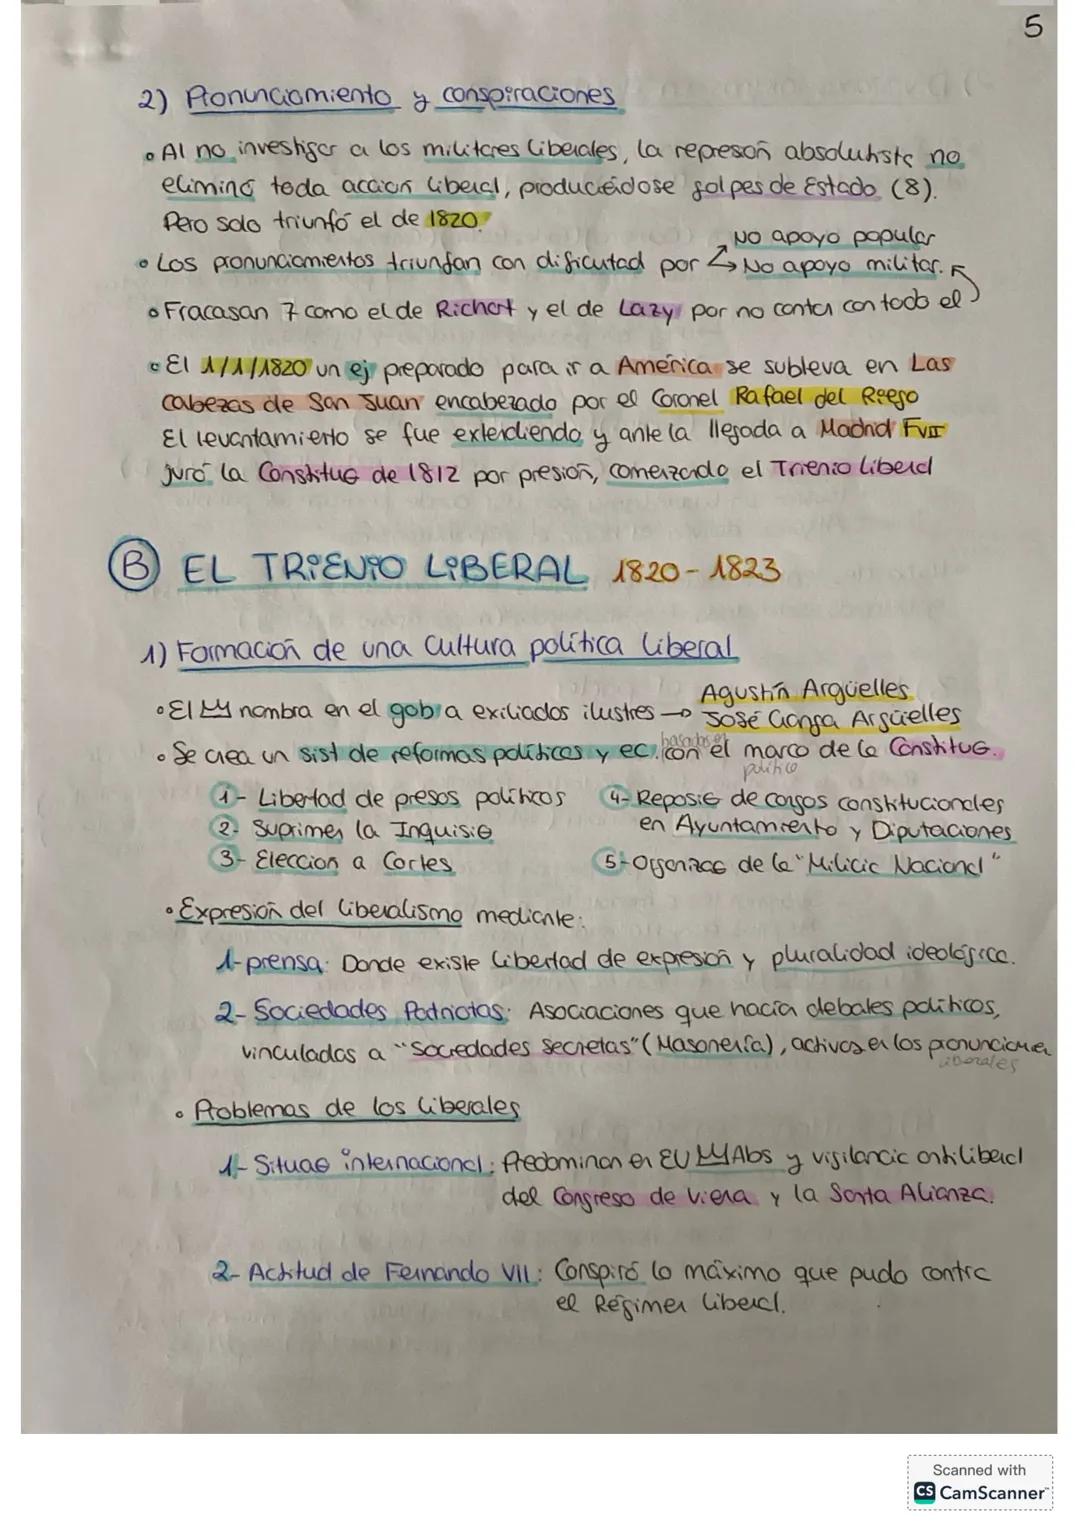 5
2) Pronunciamiento y conspiraciones
• Al no investigar a los militares liberales, la represoñ absolutista no
eliminó toda acción liberal, produciéndose golpes de Estado (8).
Pero solo triunfó el de 1820.
No apoyo popular
• Los pronunciamientos triunfan con dificutad por → No apoyo militar.
• Fracasan 7 como el de Richart y el de Lazy por no contar con todo el
• El 1/1/1820 un ej preparado para ir a América se subleva en Las
cabezas de San Juan encabezado por el Coronel Rafael del Riego
El levantamiento se fue extendiendo y ante la llegada a Madrid FVII
juró la Constituc de 1812 por presión, comenzando el Trienio liberal
B EL TRIENIO LIBERAL 1820-1823
1) Formación de una Cultura política liberal
Agustín Argüelles
• El nombra en el gob a exiliados ilustres → José Canga Argüelles
• Se crea un sist de reformas políticas y ec. basados en con el marco de la Constituc.
político
1- Libertad de presos políticos 4- Reposic de cargos constitucionales
2- Suprimen la Inquisic en Ayuntamiento y Diputaciones
3- Eleccion a Cortes 5- Organizac de la "Milicia Nacional"
• Expresión del liberalismo mediante:
1- prensa: Donde existe libertad de expresión y pluralidad ideológica.
2- Sociedades Patriotas: Asociaciones que hacía debates políticos,
vinculados a "Sociedades secretas" (Masonería), activos en los pronunciamien
liberales
• Problemas de los liberales
1- Situac internacional: Predominan en EU Abs y vigilancia antiliberal
del Congreso de Viena y la Santa Alianza.
2- Actitud de Fernando VII: Conspiró lo máximo que pudo contra
el Régimen liberal.
Scanned with
CS CamScanner™